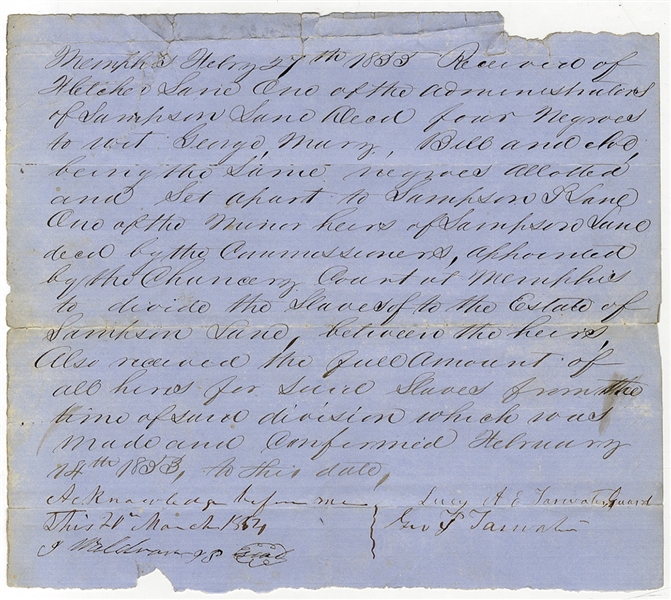 Memphis Febry 27th 1855 Received of
Fletcher Lane One of the administrators
of Sampson Lane Decd four Negroes
to wit George, Mary, Bill and
being the Same negroes allotted
and Set apart to Sampson Lane
One of the Minor heirs of Sampson Lane
decd by the Commissioners, appointed
by the Chancery Court at Memphis
to divide the Slaves of to the Estate of
Sampson Lane, between the heirs,
Also received the full Amount of
all hires for Said Slaves from the
time of said division which was
Made and Confirmed February
14th 1853, to this date,
Acknowledge before me
This March
J Waldran
Lucy A E Tarwater Guard
Geo F Tarwater